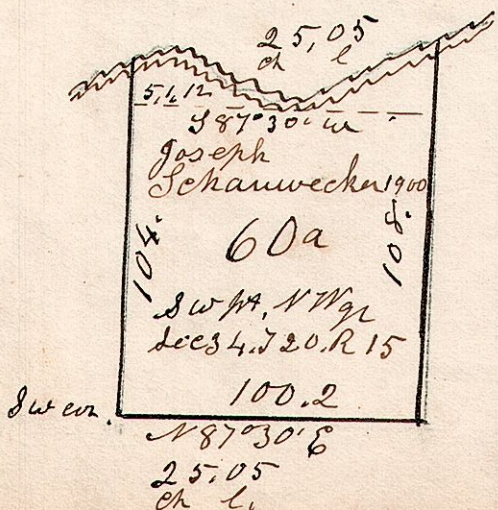 25,05
ch l
5,1,12
S 87°30' W
Joseph
Schauwecker 1900
60a
104.
108.
SW pt, NW qr
Sec 34. T 20. R 15
100.2
SW cor.
N 87°30' E
25,05
ch l.